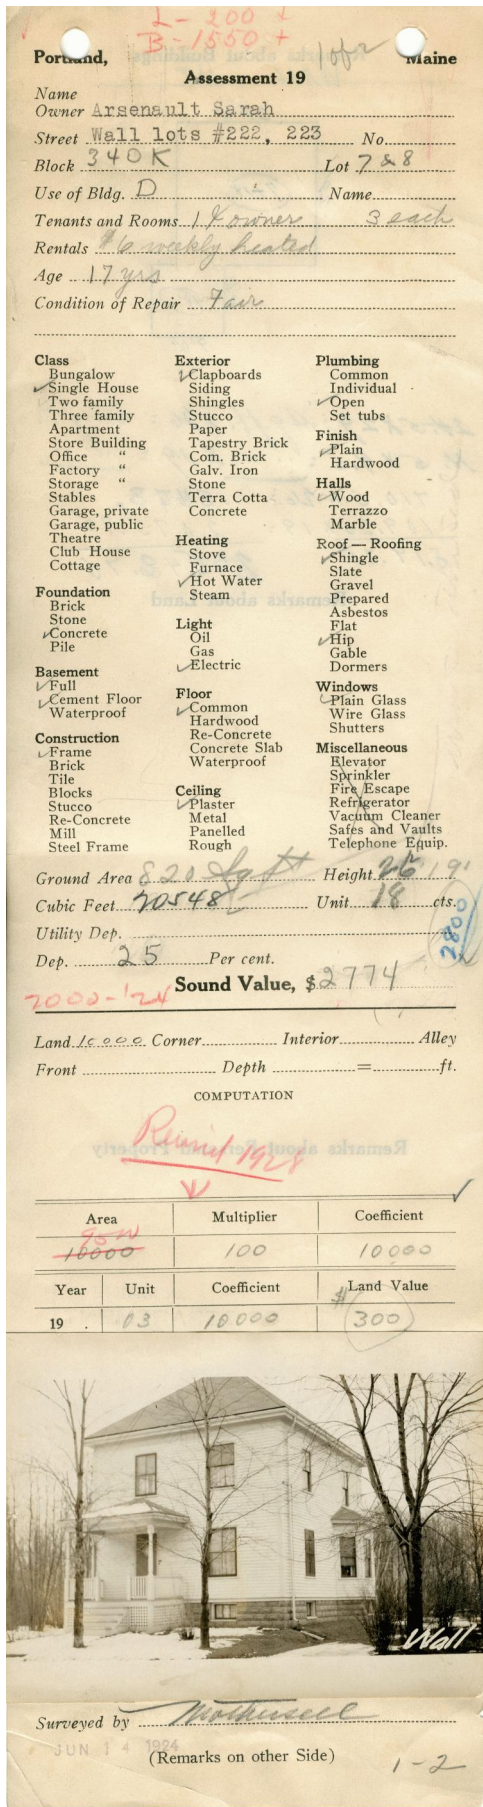 L - 200 +
B - 1550 +
1 of 2
Portland, Maine
Assessment 19
Name
Owner Arsenault Sarah
Street Wall lots #222, 223 No.
Block 340K Lot 7 & 8
Use of Bldg. D Name
Tenants and Rooms 1 & owner 3 each
Rentals $6 weekly heated
Age 17 yrs
Condition of Repair Fair
Class
Bungalow
Single House
Two family
Three family
Apartment
Store Building
Office "
Factory "
Storage "
Stables
Garage, private
Garage, public
Theatre
Club House
Cottage
Foundation
Brick
Stone
Concrete
Pile
Basement
Full
Cement Floor
Waterproof
Construction
Frame
Brick
Tile
Blocks
Stucco
Re-Concrete
Mill
Steel Frame
Exterior
Clapboards
Siding
Shingles
Stucco
Paper
Tapestry Brick
Com. Brick
Galv. Iron
Stone
Terra Cotta
Concrete
Heating
Stove
Furnace
Hot Water
Steam
Light
Oil
Gas
Electric
Floor
Common
Hardwood
Re-Concrete
Concrete Slab
Waterproof
Ceiling
Plaster
Metal
Panelled
Rough
Plumbing
Common
Individual
Open
Set tubs
Finish
Plain
Hardwood
Halls
Wood
Terrazzo
Marble
Roof — Roofing
Shingle
Slate
Gravel
Prepared
Asbestos
Flat
Hip
Gable
Dormers
Windows
Plain Glass
Wire Glass
Shutters
Miscellaneous
Elevator
Sprinkler
Fire Escape
Refrigerator
Vacuum Cleaner
Safes and Vaults
Telephone Equip.
Ground Area 820 Sq ft Height 25 19'
Cubic Feet 20548 Unit 18 cts.
Utility Dep.
2800
Dep. 25 Per cent.
Sound Value, $2774
2000-'24
Land 10000 Corner Interior Alley
Front Depth = ft.
COMPUTATION
Revised 1928
Area Multiplier Coefficient
10000 100 10000
Year Unit Coefficient Land Value
19 . 03 10000 $300
Wall
Surveyed by
JUN 14 1924
(Remarks on other Side)
1-2